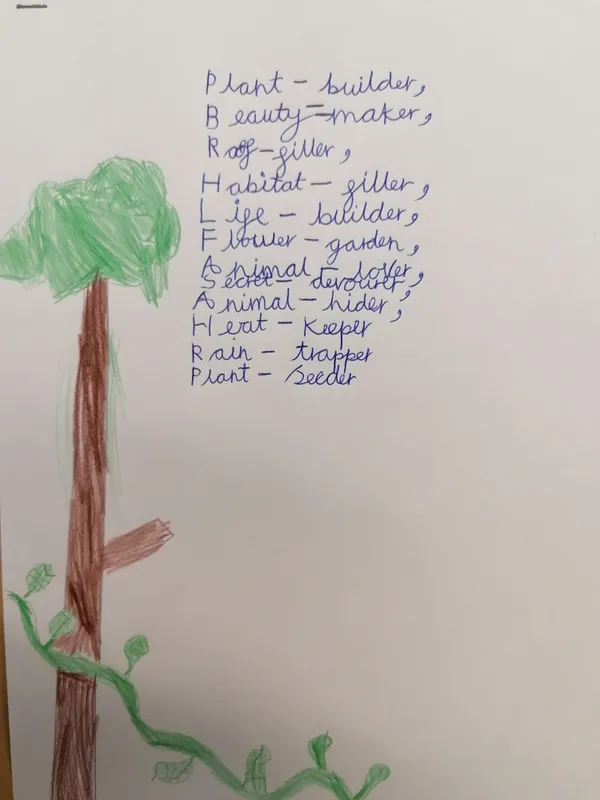 Plant - builder,
Beauty-maker,
giller,
Habitat - giller,
Lige - builder,
Flower - garden,
Animal - lover,
Secret - devourer,
Animal - hider,
Heat - Keeper
Rain - trapper
Plant - Seeder